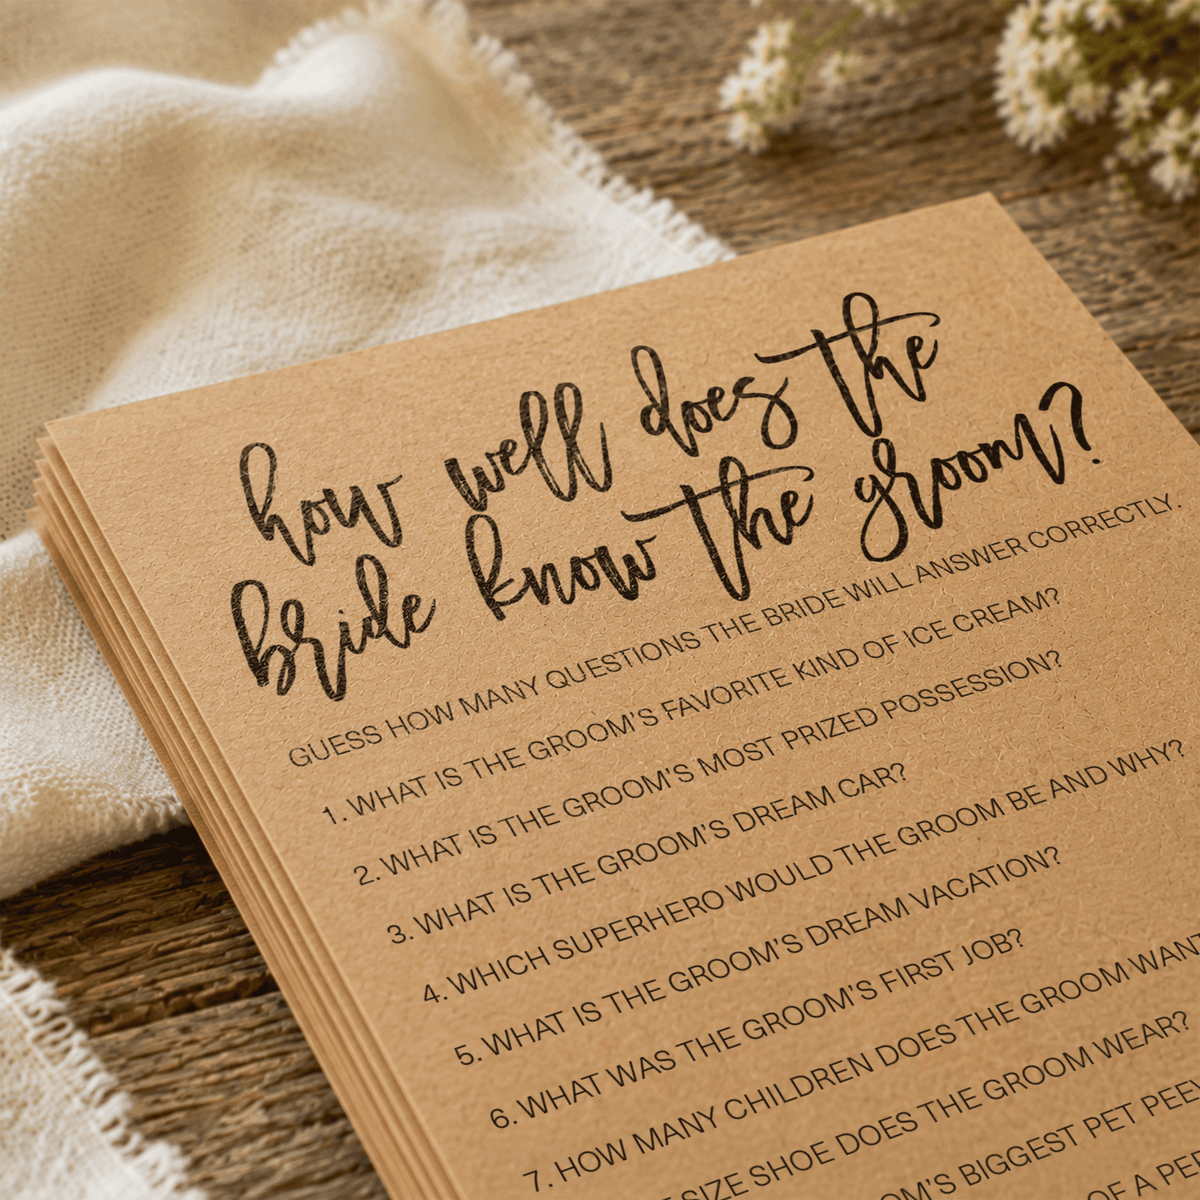 how well does the
bride know the groom?
GUESS HOW MANY QUESTIONS THE BRIDE WILL ANSWER CORRECTLY.
1. WHAT IS THE GROOM'S FAVORITE KIND OF ICE CREAM?
2. WHAT IS THE GROOM'S MOST PRIZED POSSESSION?
3. WHAT IS THE GROOM'S DREAM CAR?
4. WHICH SUPERHERO WOULD THE GROOM BE AND WHY?
5. WHAT IS THE GROOM'S DREAM VACATION?
6. WHAT WAS THE GROOM'S FIRST JOB?
7. HOW MANY CHILDREN DOES THE GROOM WANT
SIZE SHOE DOES THE GROOM WEAR?
BIGGEST PET
OF A